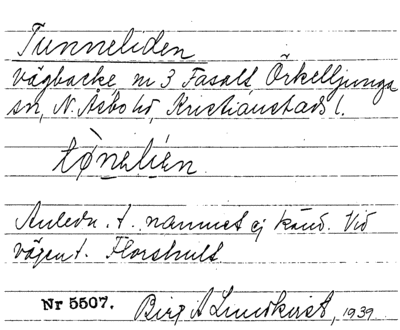 Tunneliden
vägbacke, nr 3 Fasalt, Örkelljunga
sn, N. Åsbo hd, Kristianstads l.
tø̀nəlìən.
Anledn. t. namnet ej känd. Vid
vägen t. Florshult
Nr 5507. Birg. A Lundkvist, 1939